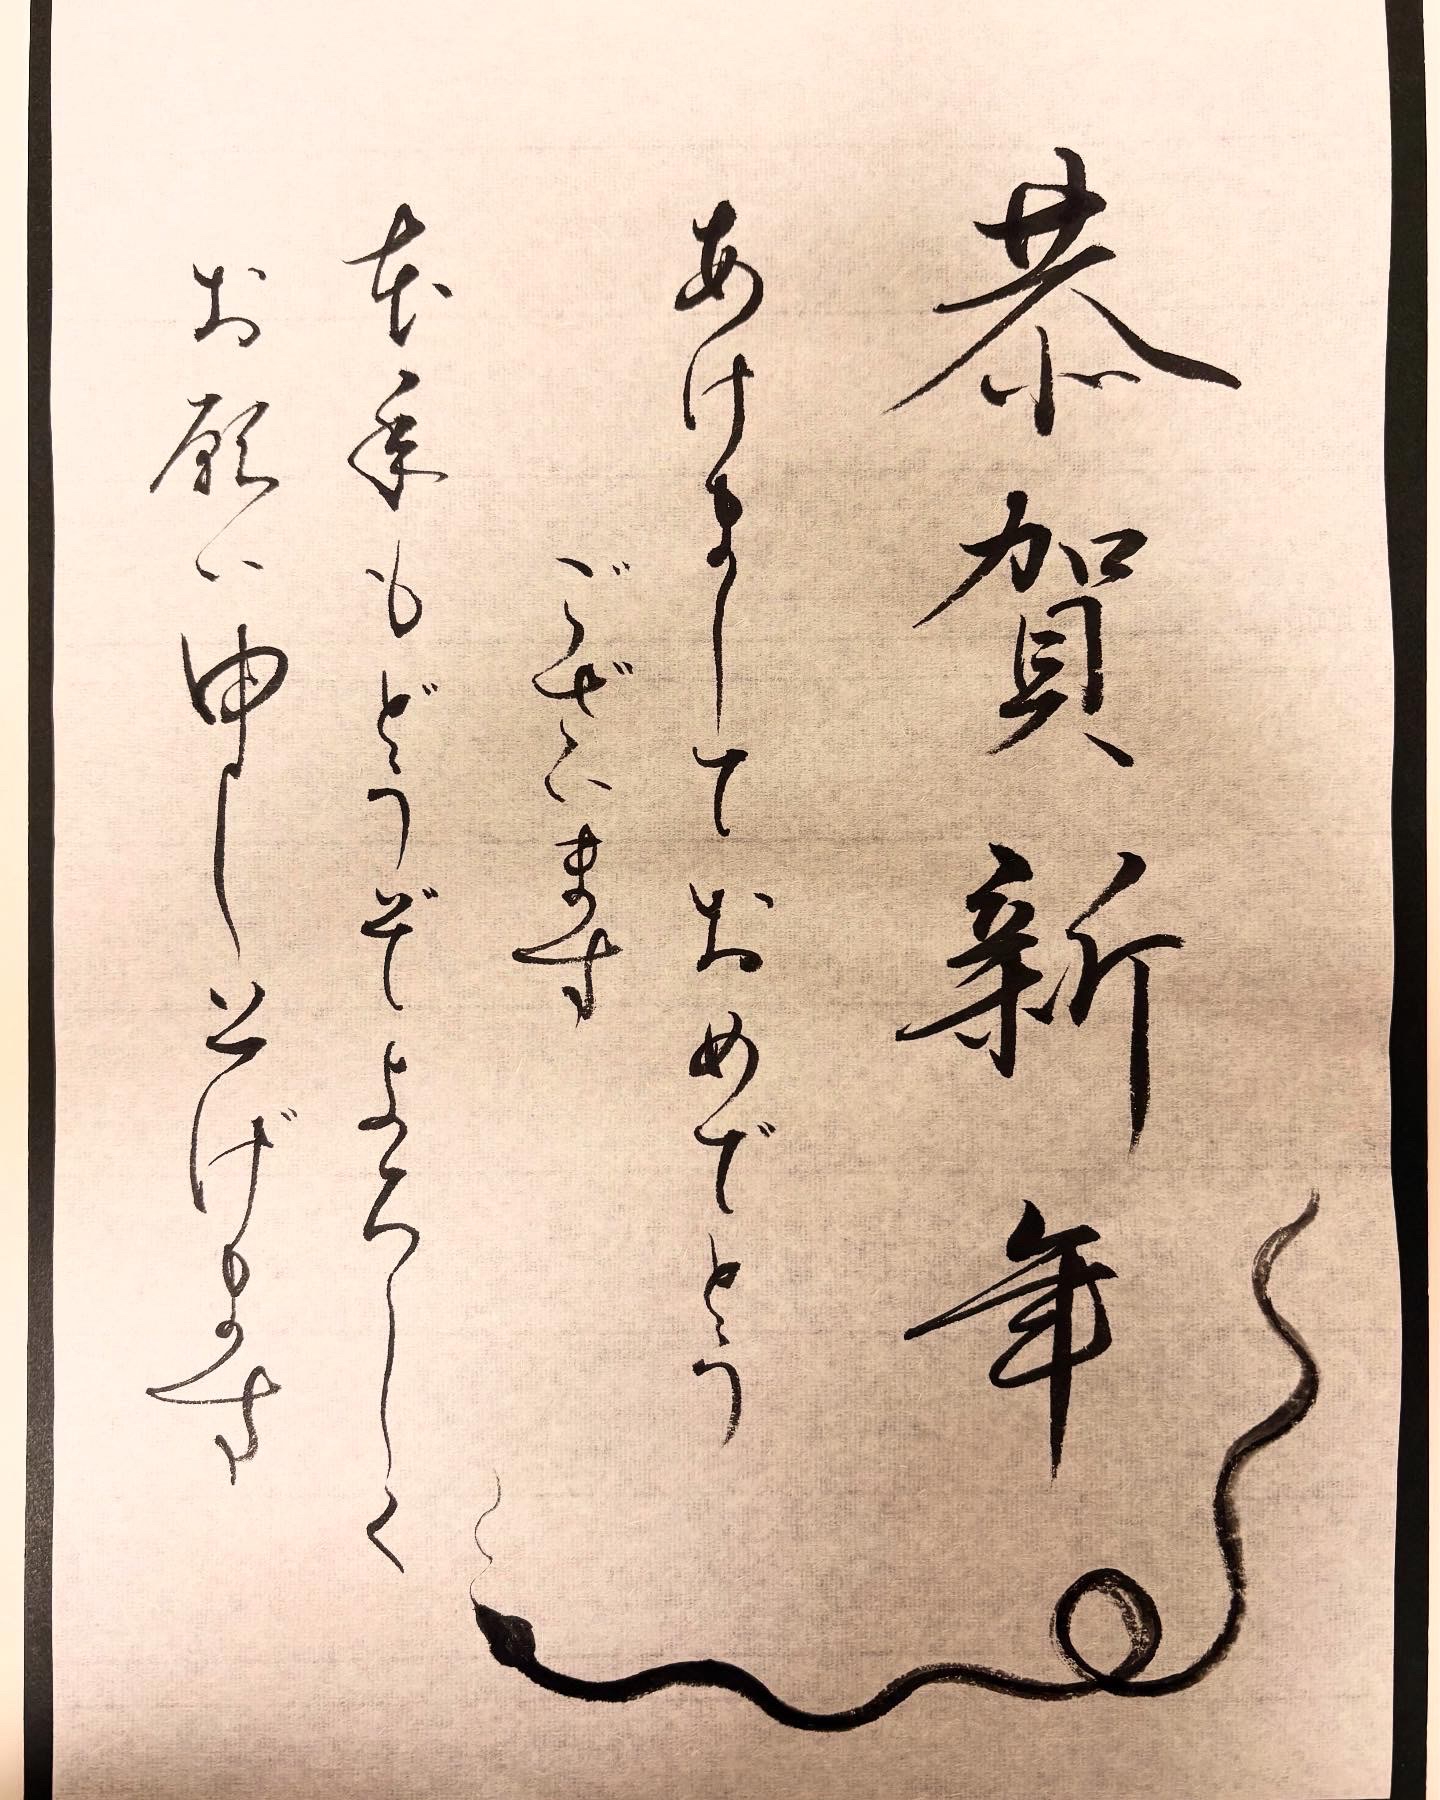 恭賀新年
あけましておめでとう
ございます
本年もどうぞよろしく
お願い申し上げます